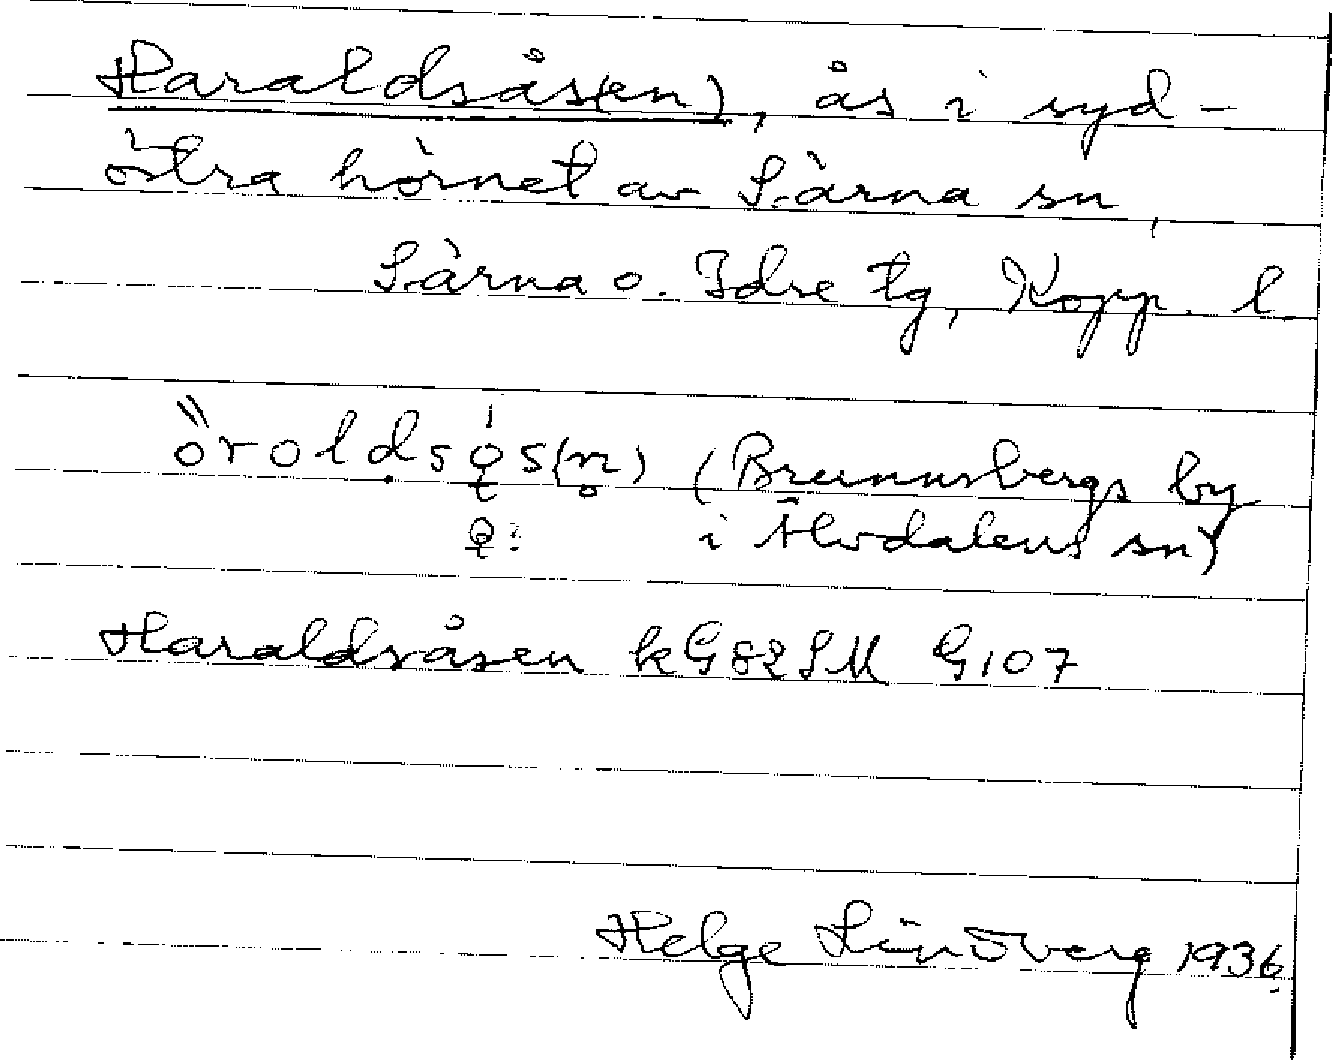 Haraldsås(en), ås i syd-
östra hörnet av Särna sn,
Särna o. Idre tg, Kopp. l.
öroldsǫs(n̥) (Brunnsbergs by
ǫ: i Älvdalens sn)
Haraldsåsen kG82SM G107
Helge Lindberg 1936